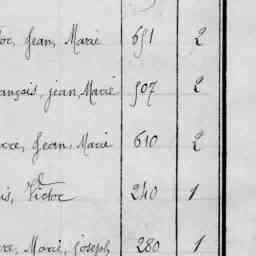 tor, Jean, Marie 651 2
ançois, jean, Marie 507 2
erre, Jean, Marie 610 2
is, Victor 240 1
rre, Marie, joseph 280 1